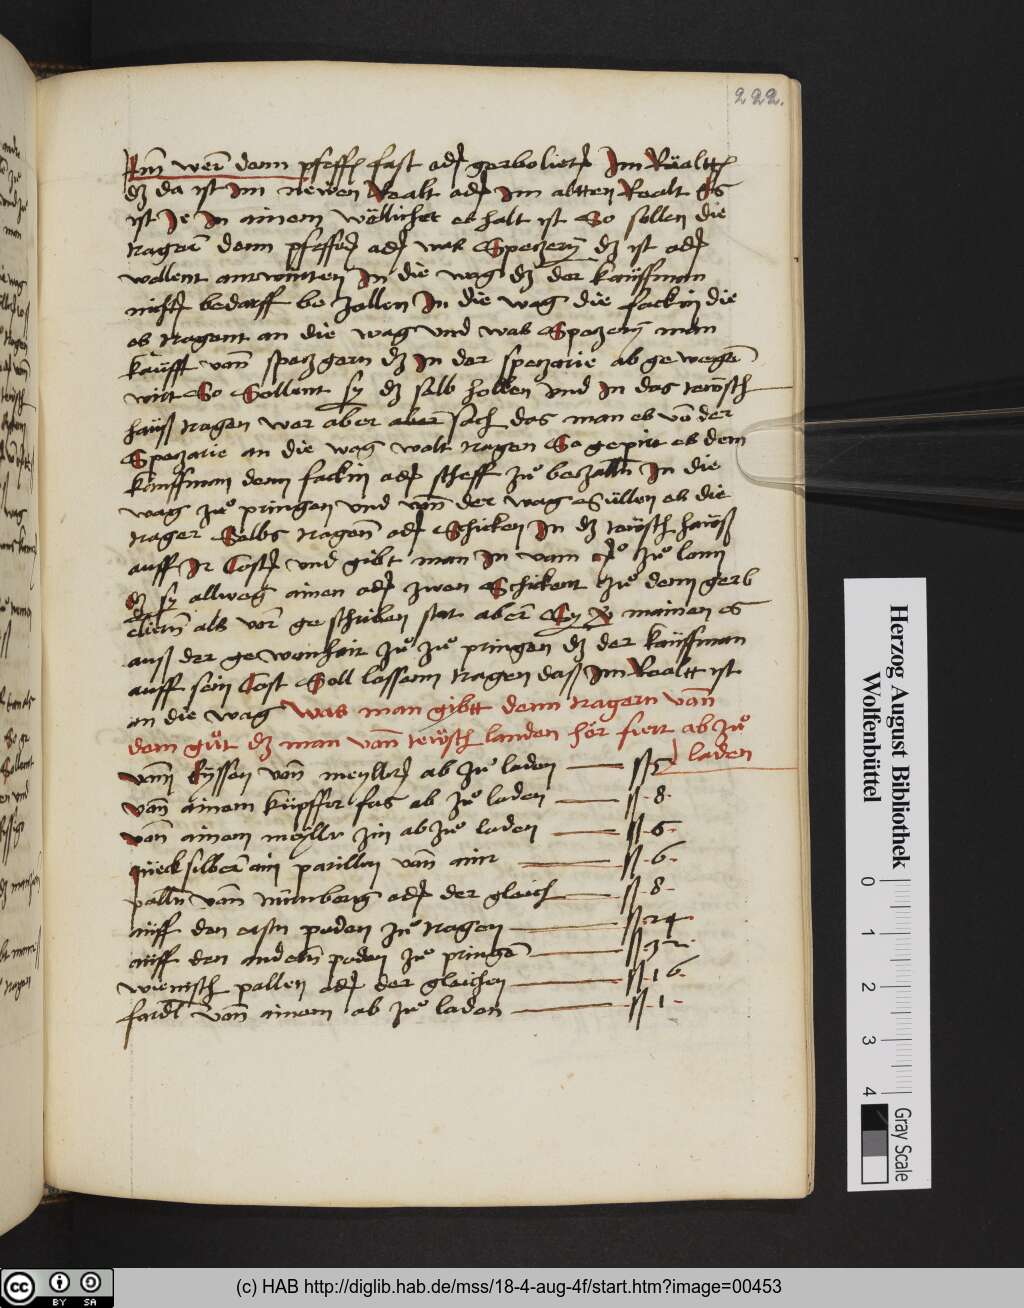 222.
Jtm wer denn pfeffer fast oder gerboliert Jm Rüaltt
dz da ist Jm newen Realt oder Jm altten Realt Es
ist Je Jn ainem wöllichet es halt ist So sollen die
trager denn pfeffer oder was Speczery dz ist oder
wollent antwurten Jn die wag dz der kauffman
nichtz bedarff be zallen Jn die wag die fackin die
es tragent an die wag vnd was Speczery man
kaufft vann speczgern dz Jn der speczarie ab ge wegen
wirt So Sollent sy dz selb hollen vnd Jn das tewsch
hauß tragen wer aber sach das man es von der
Speczarie an die wag wolt tragen So gepirt es dem
kauffman denn fackin oder scheff zu beczalln Jn die
wag zu pringen vnd von der wag Süllen es die
trager Selbs tragenn oder Schicken Jn dz tewsch hawß
auff Jr Cost vnd gibt man Jn vam zu lonn
dz sy allweg ainen oder zwen Schickent zu dem gerb
eliern als vor ge schriben stat aber Sy mainen es
auß der ge wonhait zu zu pringen dz der kauffman
auff sein Cost Soll lassenn tragen daß Jm Realtt ist
an die wag Was man gibtt denn tragern vann
dem gut dz man vann tewsch landen her fiert ab zu
laden
vonn kyssen vonn meyller ab zu laden — ß 5
vann ainem küpffer fas ab zu laden — ß · 8 ·
vann ainem meyller zin ab zu laden — ß · 6 ·
quecksilber ain parillin vann aim — ß · 6 ·
palln vann nürnberg oder der gleich — ß · 8 ·
auff den ersten poden zu tragen — ß 24
auff den andern poden zu pringen — ß 32
wienisch pallen oder der gleichen — ß · 16 ·
fardl vonn ainem ab zu laden — ß · 1 ·
Herzog August Bibliothek
Wolfenbüttel
0 1 2 3 4
Gray Scale
cc BY SA
(c) HAB http://diglib.hab.de/mss/18-4-aug-4f/start.htm?image=00453